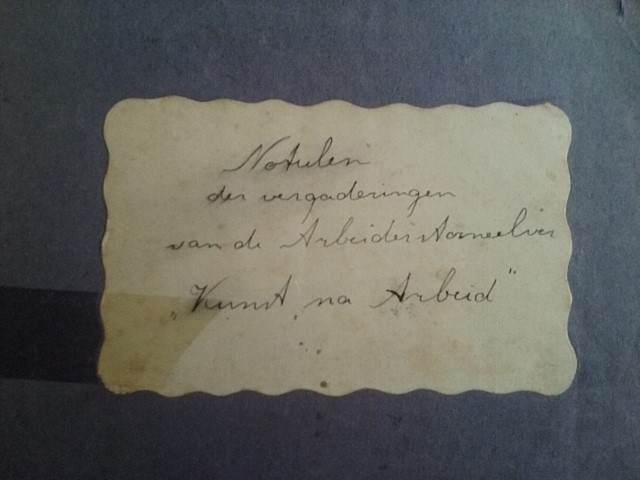 Notulen
der vergaderingen
van de Arbeiderstoneelver
„Kunst na Arbeid"